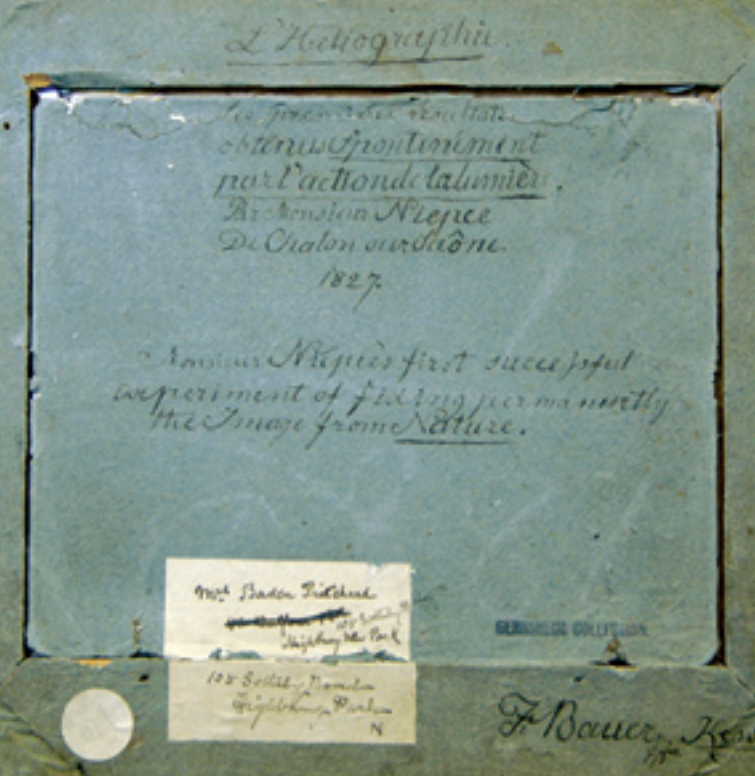 L'Heliographie.
Les premiers résultats
obtenus Spontanément
par l'action de la lumière.
Par Monsieur Niepce
De Chalon sur Saône.
1827.
Monsieur Niepce's first successful
experiment of fixing permanently
the Image from Nature.
Mrs Baden Pritchard
Highbury New Park
GERNSHEIM COLLECTION
108 Sotheby Road
Highbury Park
N
F Bauer